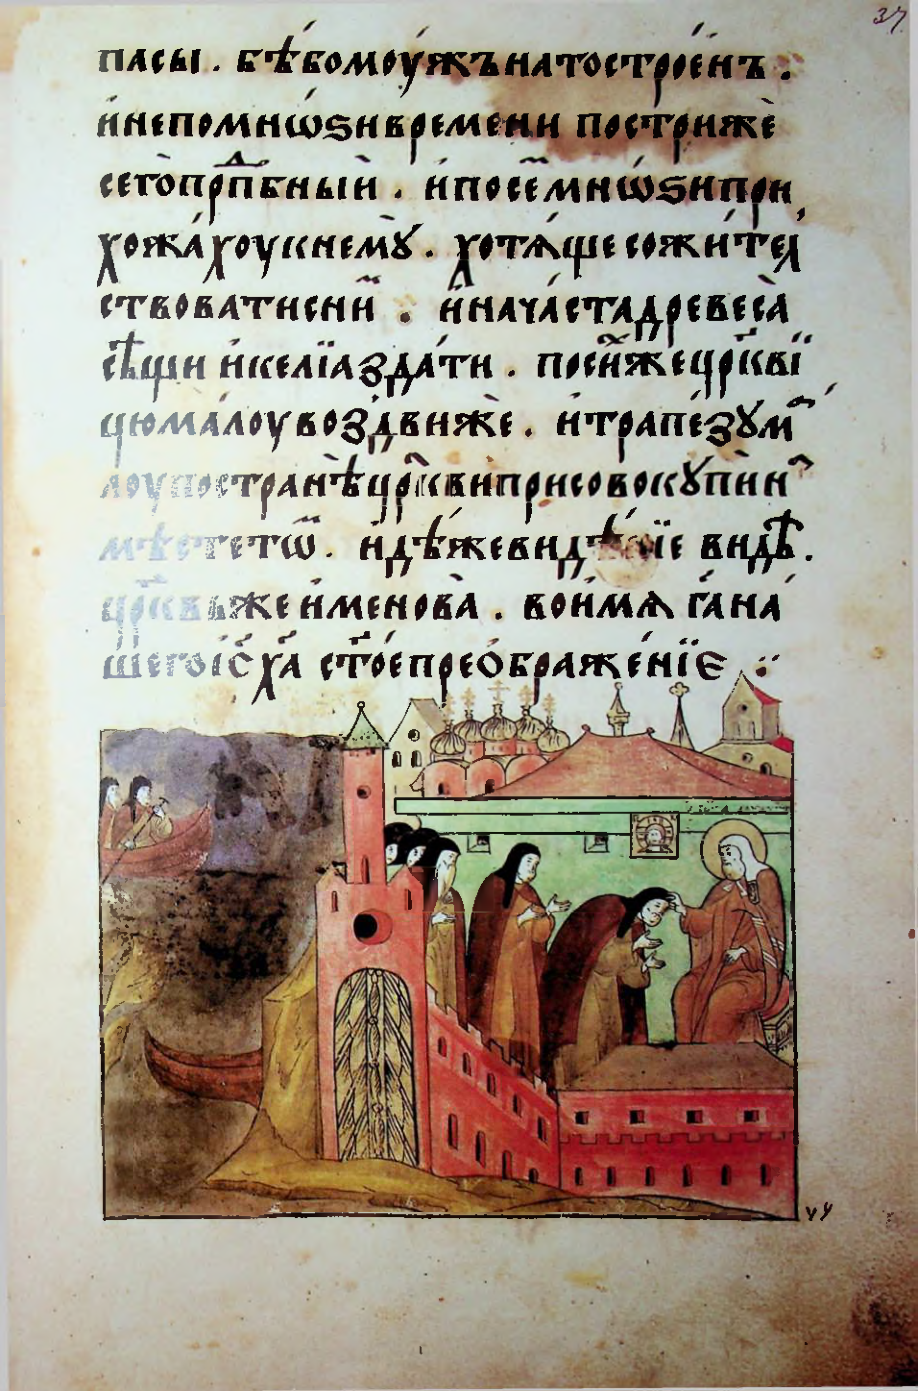 37
пасы . бѣ́ бо моу́жъ на то строе́нъ .
и҆ не по мнѡ́ѕи времени пострижѐ
сего̀ прпⷣбныи̇̀ . и҆ по се́м мнѡѕи при
хожа́хоу к нему̀ . хотѧ́ще сожи́тел
ствовати с ниⷨ . и҆ нача́ста древеса̀
сѣ́щи и҆ келїа зда́ти . по си́х же црⷪ҇кви́
цю ма́лоу воздви́же . и҆ трапе́зу маⷧ
лоу по странѣ̀ црⷪ҇кви присовокупи́ н҃
мѣсте тѡⷨ . и҆дѣ́же видѣ́нїе видѣ̀ .
црⷪ҇квь же и҆менова̀ . во и҆́мѧ га́ на́
шего і҆с҃ ха҃ ст҃о́е преѡбраже́нїе .